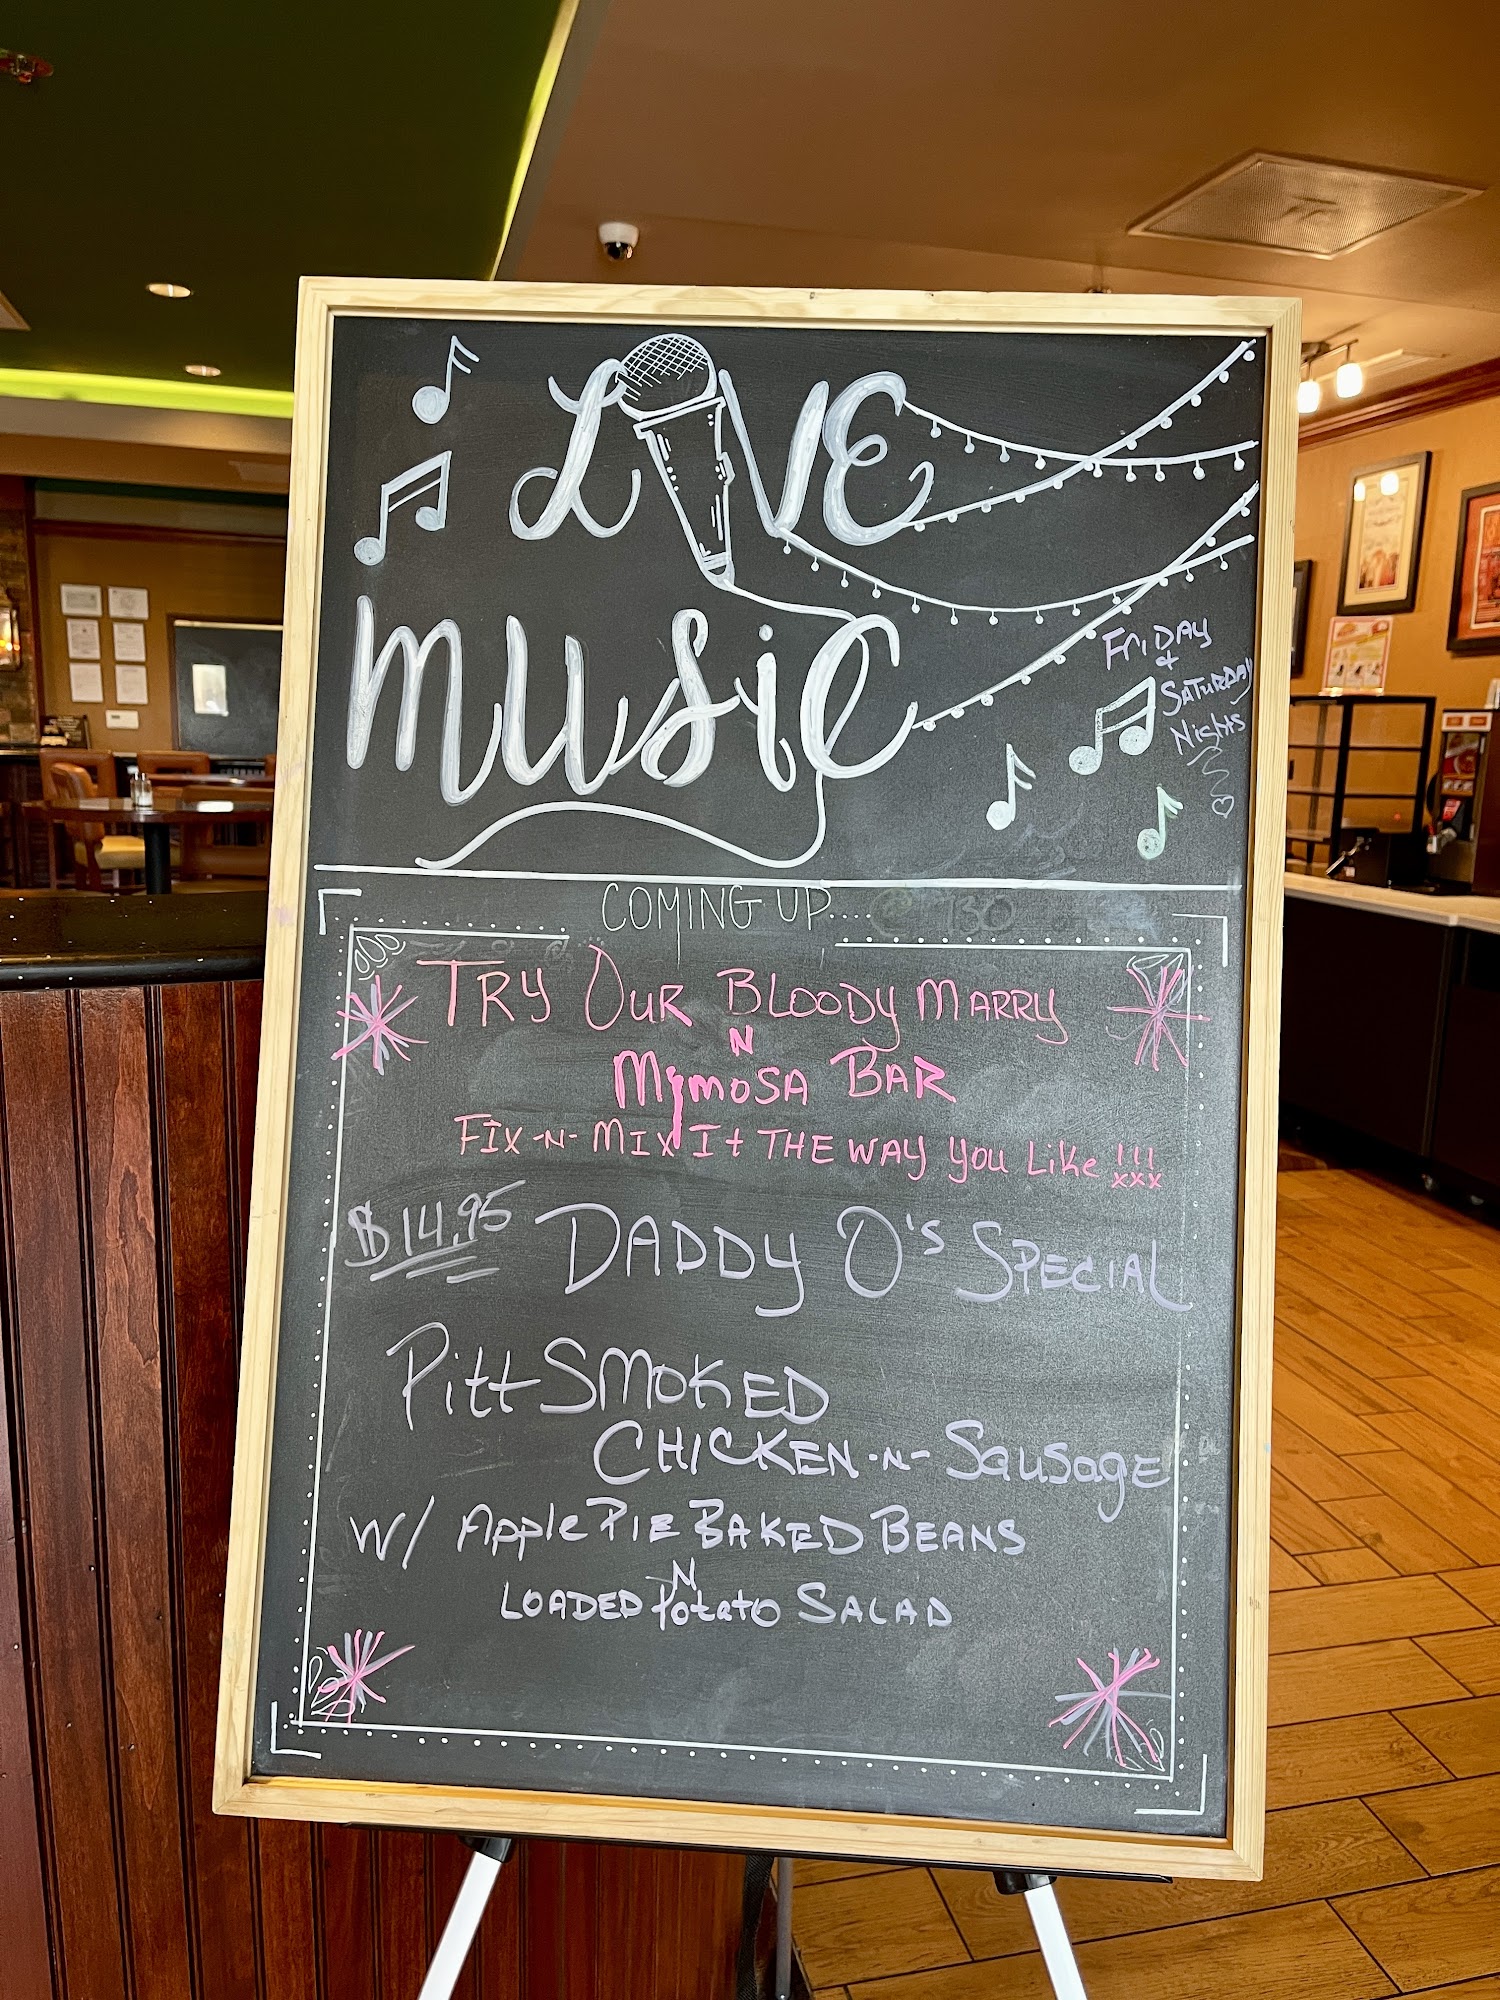 LIVE
MUSiC
FRiDAY
+
SATURDAY
Nights
COMING UP....
TRY OUR BLOODY MARRY
N
MiMOSA BAR
FIX-N-MIX It THE WAY YOU LiKe !!!
xxx
$14.95 DADDY O'S SPECIAL
Pitt SMOKED
CHICKEN-N-SausagE
W/ Apple PIE BAKED BEANS
N
LOADED Potato SALAD